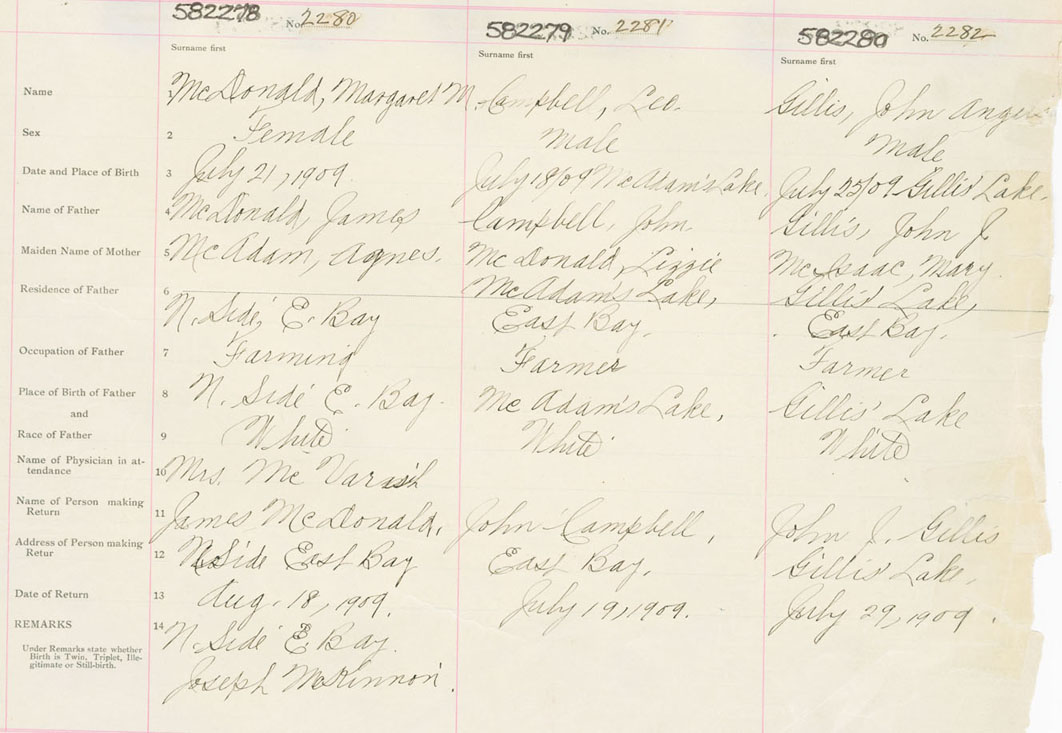 582278 No. 2280 582279 No. 2281 582280 No. 2282
Surname first Surname first Surname first
Name 1 McDonald, Margaret M. Campbell, Leo. Gillis, John Angus
Sex 2 Female Male Male
Date and Place of Birth 3 July 21, 1909. July 18/09 McAdam's Lake. July 25/09 Gillis' Lake.
Name of Father 4 McDonald, James Campbell, John. Gillis, John J.
Maiden Name of Mother 5 McAdam, Agnes. McDonald, Lizzie McIsaac, Mary.
Residence of Father 6 McAdam's Lake, Gillis' Lake,
N. Side, E. Bay East Bay. East Bay.
Occupation of Father 7 Farming Farmer Farmer
Place of Birth of Father 8 N. Side E. Bay. McAdam's Lake, Gillis' Lake
and
Race of Father 9 White White White
Name of Physician in at-
tendance 10 Mrs. Mc
Name of Person making
Return 11 James McDonald. John Campbell, John J. Gillis
Address of Person making
Retur 12 N Side East Bay East Bay. Gillis' Lake.
Date of Return 13 Aug. 18, 1909. July 19, 1909. July 29, 1909.
REMARKS 14 N. Side E. Bay.
Under Remarks state whether
Birth is Twin, Triplet, Ille-
gitimate or Still-birth.
Joseph McKinnon.